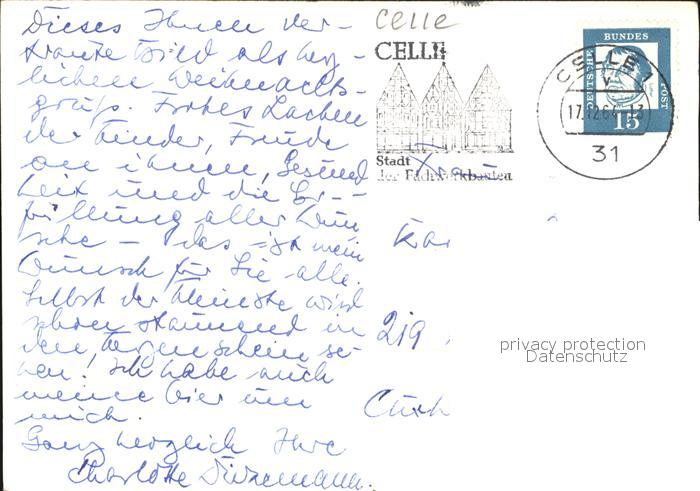 Dieses Ihnen ver-
traute Bild als herz-
lichen Weihnachts-
gruß. Frohes Lachen
der Kinder, Freude
an ihnen, Gesund
heit und die Er-
füllung aller Wün
sche – das ist mein
Wunsch für Sie alle.
Selbst der Kleinste wird
schon staunend in
den Kerzenschein se-
hen! Ich habe auch
meine hier um
mich.
Ganz herzlich Ihre
Charlotte
Celle
CELLE
Stadt
der Fachwerkbauten
DEUTSCHE BUNDESPOST
15
CELLE 1
v
17.12.64-13
31
Frau
Kar
219
Cuxh
privacy protection
Datenschutz